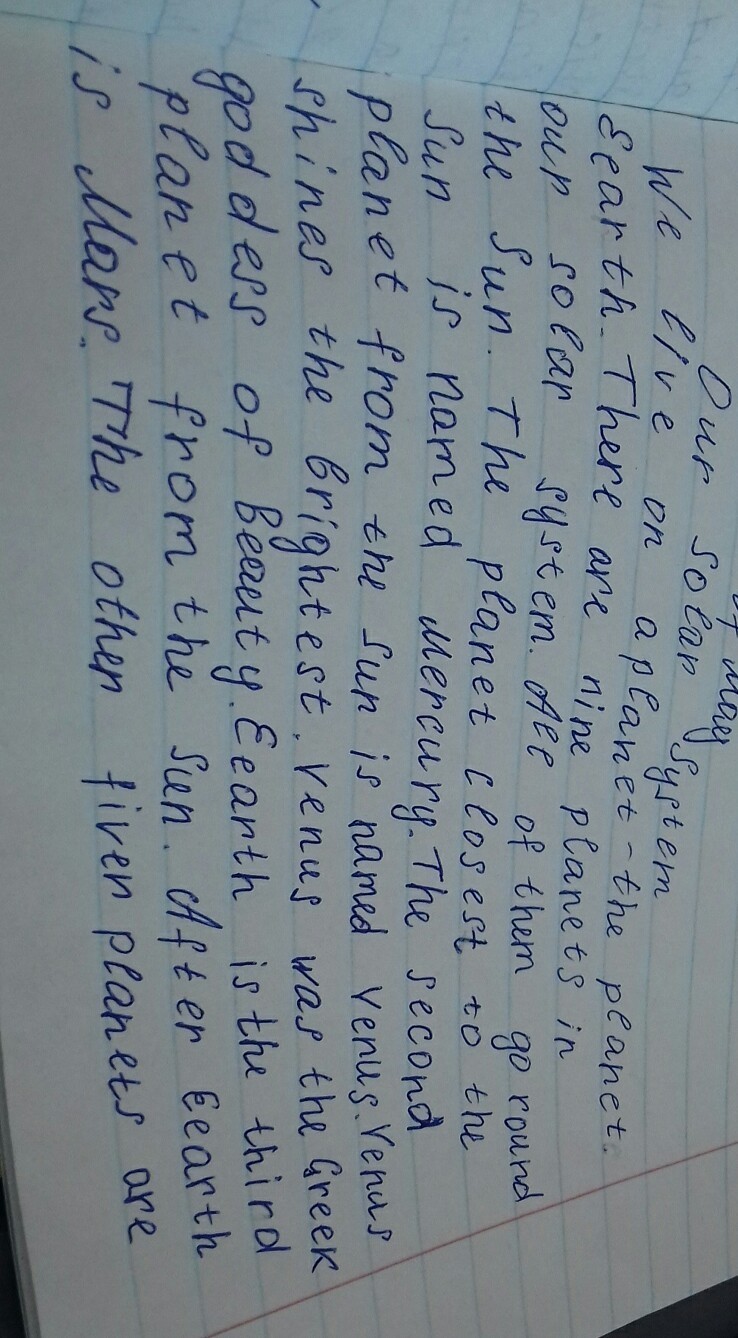 of may
Our solar system
We live on a planet - the planet
Eearth. There are nine planets in
our solar system. All of them go round
the Sun. The planet closest to the
Sun is named Mercury. The second
planet from the Sun is named Venus. Venus
shines the brightest. Venus was the Greek
goddess of beauty. Eearth is the third
planet from the Sun. After Eearth
is Mars. The other fiven planets are